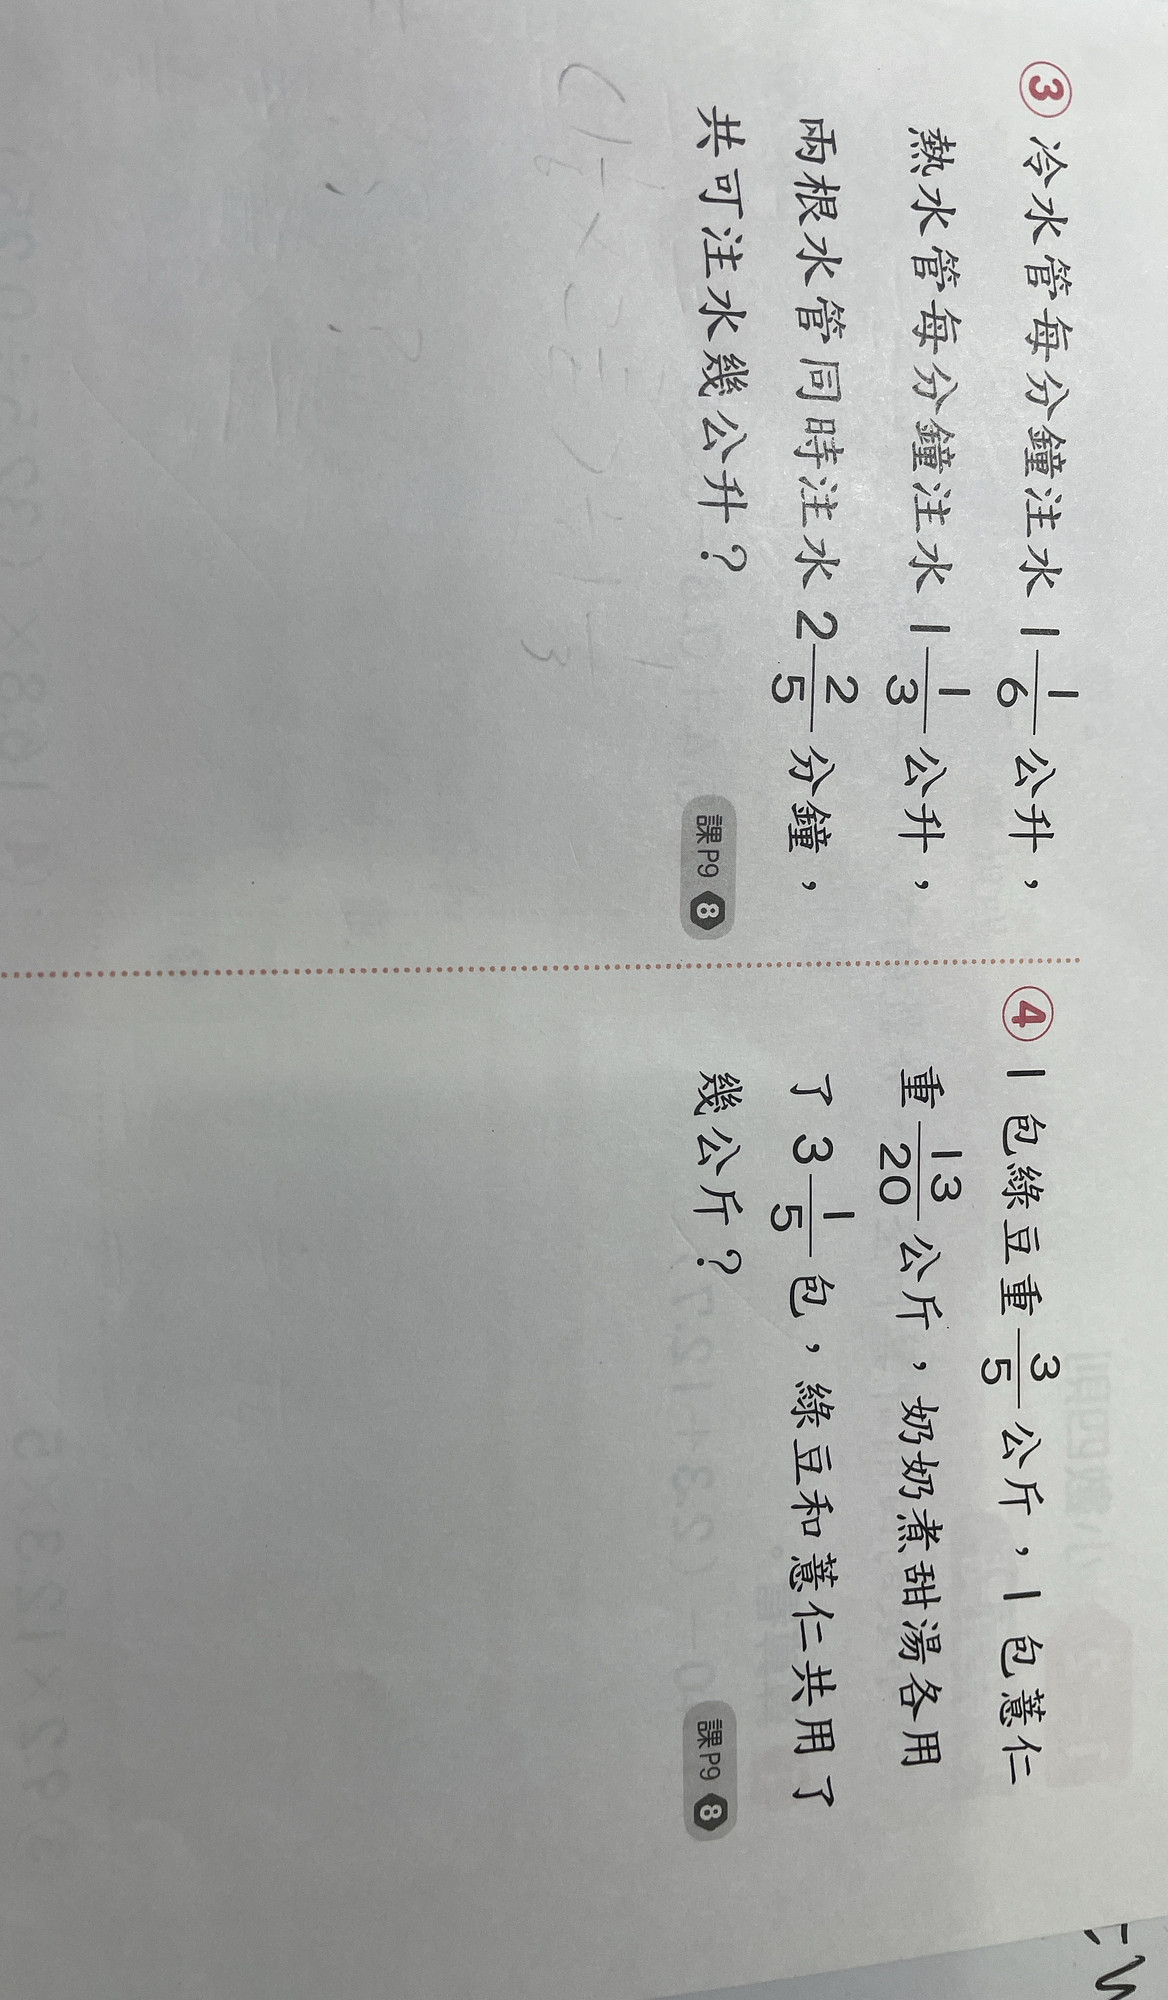 ③ 冷水管每分鐘注水 1 1/6 公升，
熱水管每分鐘注水 1 1/3 公升，
兩根水管同時注水 2 2/5 分鐘，
共可注水幾公升？
課P9 8
④ 1 包綠豆重 3/5 公斤，1 包薏仁
重 13/20 公斤，奶奶煮甜湯各用
了 3 1/5 包，綠豆和薏仁共用了
幾公斤？
課P9 8